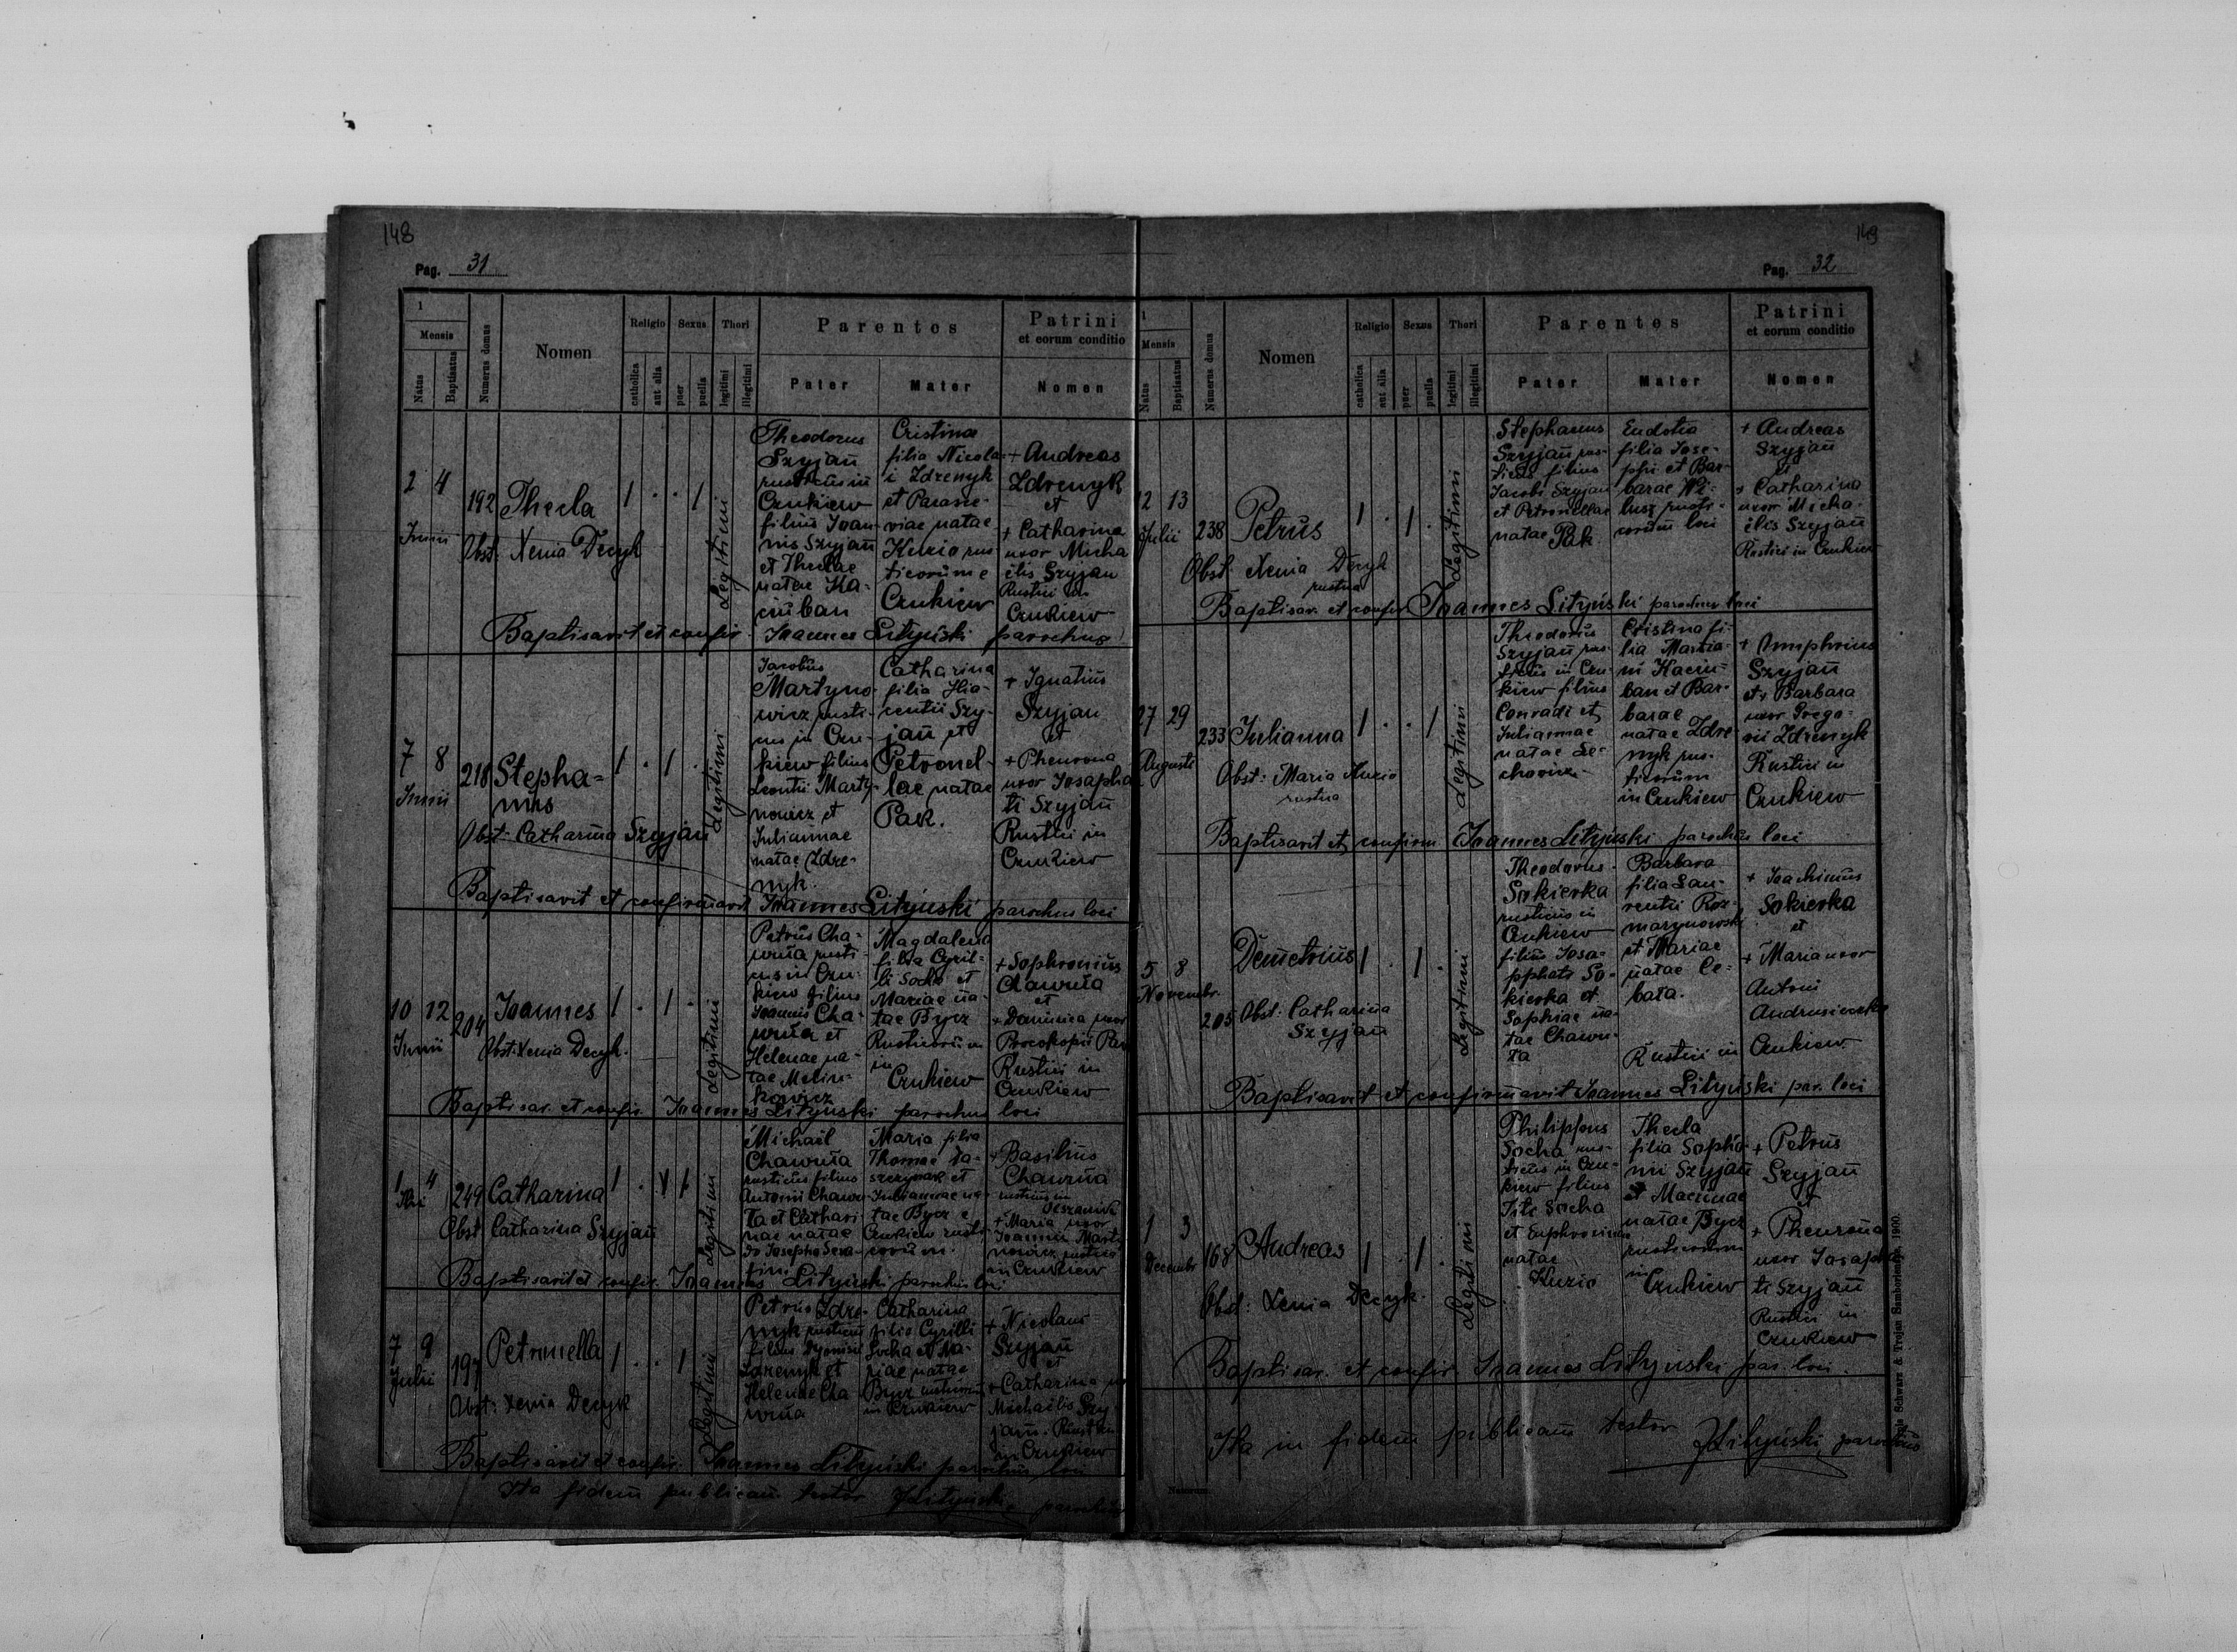 148
Pag. 31
1
Mensis
Natus
Baptisatus
Numerus domus
Nomen
Religio
catholica
aut alia
Sexus
puer
puella
Thori
legitimi
illegitimi
Parentes
Pater
Mater
Patrini
et eorum conditio
Nomen
2 4
Junii
192
Thecla
1 . . 1
Legitimi
Obst. Xenia Decyk
Theodorus
Szyjan
rusticus in
Czukiew
filius Joan-
nis Szyjan
et Theclae
natae Ka-
ciuban
Cristina
filia Nicola-
i Zdrenyk
et Parasce-
viae natae
Kuzio rus
ticorum e
Czukiew
+ Andreas
Zdrenyk
et
+ Catharina
uxor Micha
elis Szyjan
Rustici in
Czukiew
Baptisavit et confir. Joannes Lityński parochus
7 8
Junii
218
Stepha=
nus
1 . 1 .
Legitimi
Obst. Catharina Szyjan
Jacobus
Martyno-
wicz rusti-
cus in Czu-
kiew filius
Leontii Marty-
nowicz et
Juliannae
natae Zdre-
nyk.
Catharina
filia Hia-
centii Szy-
jan et
Petronel-
lae natae
Pak.
+ Ignatius
Szyjan
et
+ Phenrona
uxor Josapha
ti Szyjan
Rustici in
Czukiew
Baptisavit et confirmavit Joannes Lityński parochus loci
10 12
Junii
204
Joannes
1 . 1 .
Legitimi
Obst. Xenia Decyk.
Petrus Cha-
wrna rusti-
cus in Czu-
kiew filius
Joannis Cha-
wrna et
Helenae na-
tae Melin-
kowicz
Magdalena
filia Cyril-
li Socha et
Mariae na-
tae Bycz
Rusticorum
in
Czukiew
+ Sophronius
Chawrna
et
+ Dominica uxor
Procokopii Pak
Rustici in
Czukiew
Baptisav. et confir. Joannes Lityński parochus loci
1 4
249
Catharina
1 .
Legitimi
Obst. Catharina Szyjan
Michael
Chawrna
rusticus filius
Antonii Chawr-
na et Cathari
nae natae
Maria filia
Thomae
et
Juliannae na-
tae Bycz e
Czukiew rusti-
corum.
+ Basilius
Chawrna
rusticus in
+ Maria uxor
Joannis Marty
nowicz rustica
in Czukiew
Baptisavit et confir. Joannes Lityński parochus loci
7 9
Julii
197
Petronella
1 . . 1
Legitimi
Obst: Xenia Decyk
Petrus Zdre-
nyk rusticus
filius Dyonisii
Zdrenyk et
Helenae Cha
wrna
Catharina
filia Cyrilli
Socha et Ma-
riae natae
Bycz rusticorum
in Czukiew
+ Nicolaus
Szyjan
et
+ Catharina
Michaelis Szy-
jan. Rustici
in Czukiew
Baptisavit et confir. Joannes Lityński parochus loci
Ita fidem publicam testor JLityński parochus
149
Pag. 32
1
Mensis
Natus
Baptisatus
Numerus domus
Nomen
Religio
catholica
aut alia
Sexus
puer
puella
Thori
legitimi
illegitimi
Parentes
Pater
Mater
Patrini
et eorum conditio
Nomen
12 13
Julii
238
Petrus
1 . 1 .
Legitimi
Obst. Xenia Decyk
rustica
Stephanus
Szyjan rus-
ticus filius
Jacobi Szyjan
et Petronellae
natae Pak.
Eudotia
filia Jose-
phi et Bar-
barae
rusti-
corum loci
+ Andreas
Szyjan
et
+ Catharina
uxor Micha-
elis Szyjan
Rustici in Czukiew
Baptisav. et confir Joannes Lityński parochus loci
27 29
Augusti
233
Julianna
1 . . 1
Legitimi
Obst: Maria Kuzio
rustica
Theodorus
Szyjan rus-
ticus in Czu-
kiew filius
Conradi et
Juliannae
natae Le-
chowicz
Cristina fi-
lia Martia-
ni Kaciu-
ban et Bar-
barae
natae Zdre
nyk rus-
ticorum
in Czukiew
+ Onuphrius
Szyjan
et + Barbara
uxor Grego-
rii Zdrenyk
Rustici in
Czukiew
Baptisavit et confirm. Joannes Lityński parochus loci
5 8
Novembr.
205
Demetrius
1 . 1 .
Legitimi
Obst: Catharina
Szyjan
Theodorus
Sokierka
rusticus in
Czukiew
filius Josa-
pphati So-
kierka et
Sophiae na-
tae Chawr-
na
Barbara
filia Lau-
rentii Roz-
marynowski
et Mariae
natae Ce-
bata.
Rustici in
+ Joachimus
Sokierka
et
+ Maria uxor
Antoni
Andrusiewicz
Czukiew
Baptisavit et confirmavit Joannes Lityński par. loci
1 3
Decembr
168
Andreas
1 . 1 .
Legitimi
Obst: Xenia Decyk.
Philippus
Socha rus-
ticus in Czu-
kiew filius
Tite Socha
et Euphrosinae
natae
Kuzio
Thecla
filia Sophro-
nii Szyjan
et Macrinae
natae Bycz
rusticorum
in
Czukiew
+ Petrus
Szyjan
et
+ Phenrona
uxor Josapha
ti Szyjan
Rustici in
Czukiew
Baptisav. et confir Joannes Lityński par. loci.
Ita in fidem publicam testor JLityński parochus
Schwarz & Trojan Samboriae, 1900.